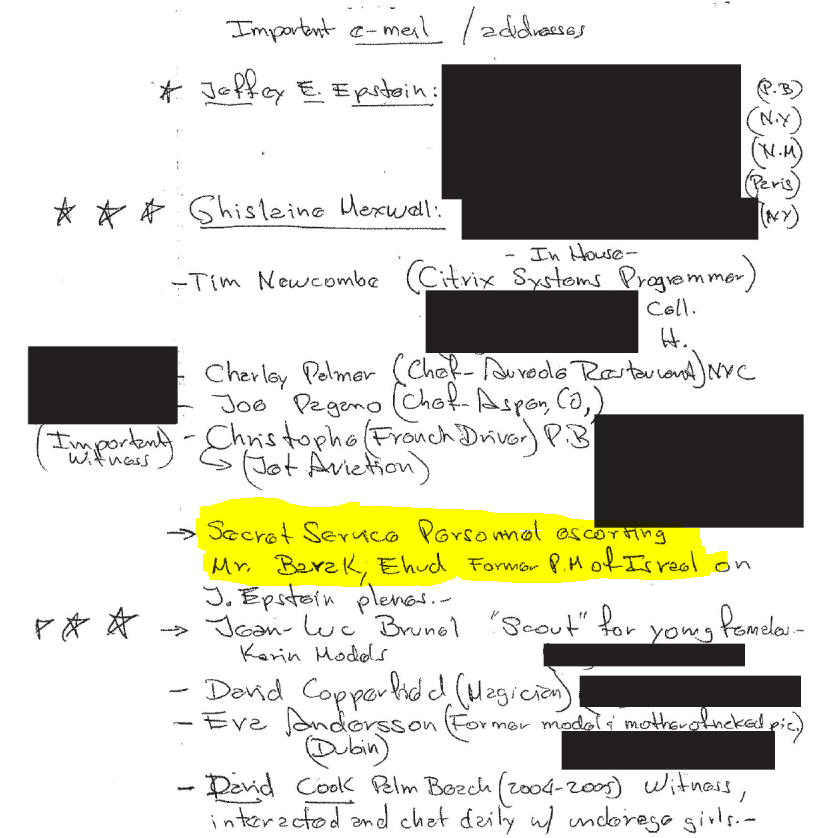 Important e-meil / addresses
Jeffey E. Epstein: (P.B)
(N.Y)
(N.M)
(Paris)
Ghislaine Mexwell: (NY)
- In House-
-Tim Newcombe (Citrix Systems Programmer)
Cell.
H.
- Charley Palmer (Chef- Aureole Restaurant) NYC
- Joe Pagano (Chef-Aspen, CO,)
(Important Witness) - Christophe (French Driver) P.B
(Jet Aviation)
→ Secret Service Personnal escorting
Mr. Barak, Ehud Former P.M of Israel on
J. Epstein planes.-
→ Jean-Luc Brunel "Scout" for young females.-
Karin Models
- David Copperfield (Magician)
- Eva Andersson (Former model & mother of naked pic.)
(Dubin)
- David Cook Palm Beach (2004-2005) Witness,
interacted and chat daily w/ underage girls.-